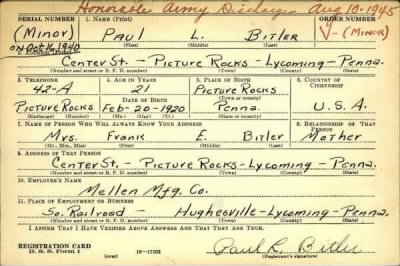 Honorable Army Discharge Aug 10-1945
SERIAL NUMBER 1. NAME (Print) ORDER NUMBER
(Minor) Paul L. Bitler V-(MINOR)
ON Oct 16, 1940 (First) (Middle) (Last)
2. ADDRESS (Print)
Center St. - Picture Rocks - Lycoming - Penna.
(Number and street or R. F. D. number) (Town) (County) (State)
3. TELEPHONE 4. AGE IN YEARS 5. PLACE OF BIRTH 6. COUNTRY OF CITIZENSHIP
42-A 21 Picture Rocks
DATE OF BIRTH (Town or county)
Picture Rocks Feb-20-1920 Penna. U.S.A.
(Exchange) (Number) (Mo.) (Day) (Yr.) (State or country)
7. NAME OF PERSON WHO WILL ALWAYS KNOW YOUR ADDRESS 8. RELATIONSHIP OF THAT PERSON
Mrs. Frank E. Bitler Mother
(Mr., Mrs., Miss) (First) (Middle) (Last)
9. ADDRESS OF THAT PERSON
Center St. - Picture Rocks - Lycoming - Penna.
(Number and street or R. F. D. number) (Town) (County) (State)
10. EMPLOYER'S NAME
Mellen Mfg. Co.
11. PLACE OF EMPLOYMENT OR BUSINESS
So. Railroad - Hughesville - Lycoming - Penna.
(Number and street or R. F. D. number) (Town) (County) (State)
I AFFIRM THAT I HAVE VERIFIED ABOVE ANSWERS AND THAT THEY ARE TRUE.
REGISTRATION CARD
D. S. S. Form 1 (over) 16-17105 Paul L. Bitler
(Registrant's signature)